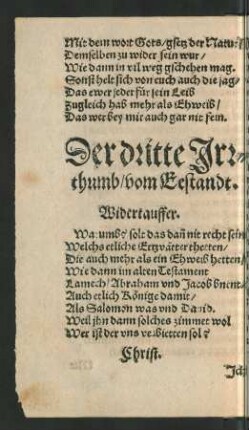 Mit dem wort Gots/gsetz der Natur/
Demselben zu wider sein wur/
Wie dann in vil weg gschehen mag.
Sonst helt sich von euch auch die sag/
Das ewer jeder für sein Leib
Zugleich hab mehr als Ehweib/
Das wer bey mir auch gar nit fein.
Der dritte Irr-
thumb/vom Eestandt.
Widertauffer.
Warumbs solt das dañ nit recht sein
Welchs etliche Ertzvätter thetten/
Die auch mehr als ein Ehweib hetten/
Wie dann im alten Testament
Lamech/Abraham vnd Jacob
Auch etlich Könige damit/
Als Salomon was vnd Dauid.
Weil jhn dann solches zimmet wol
Wer ist der vns verbietten sol?
Christ.